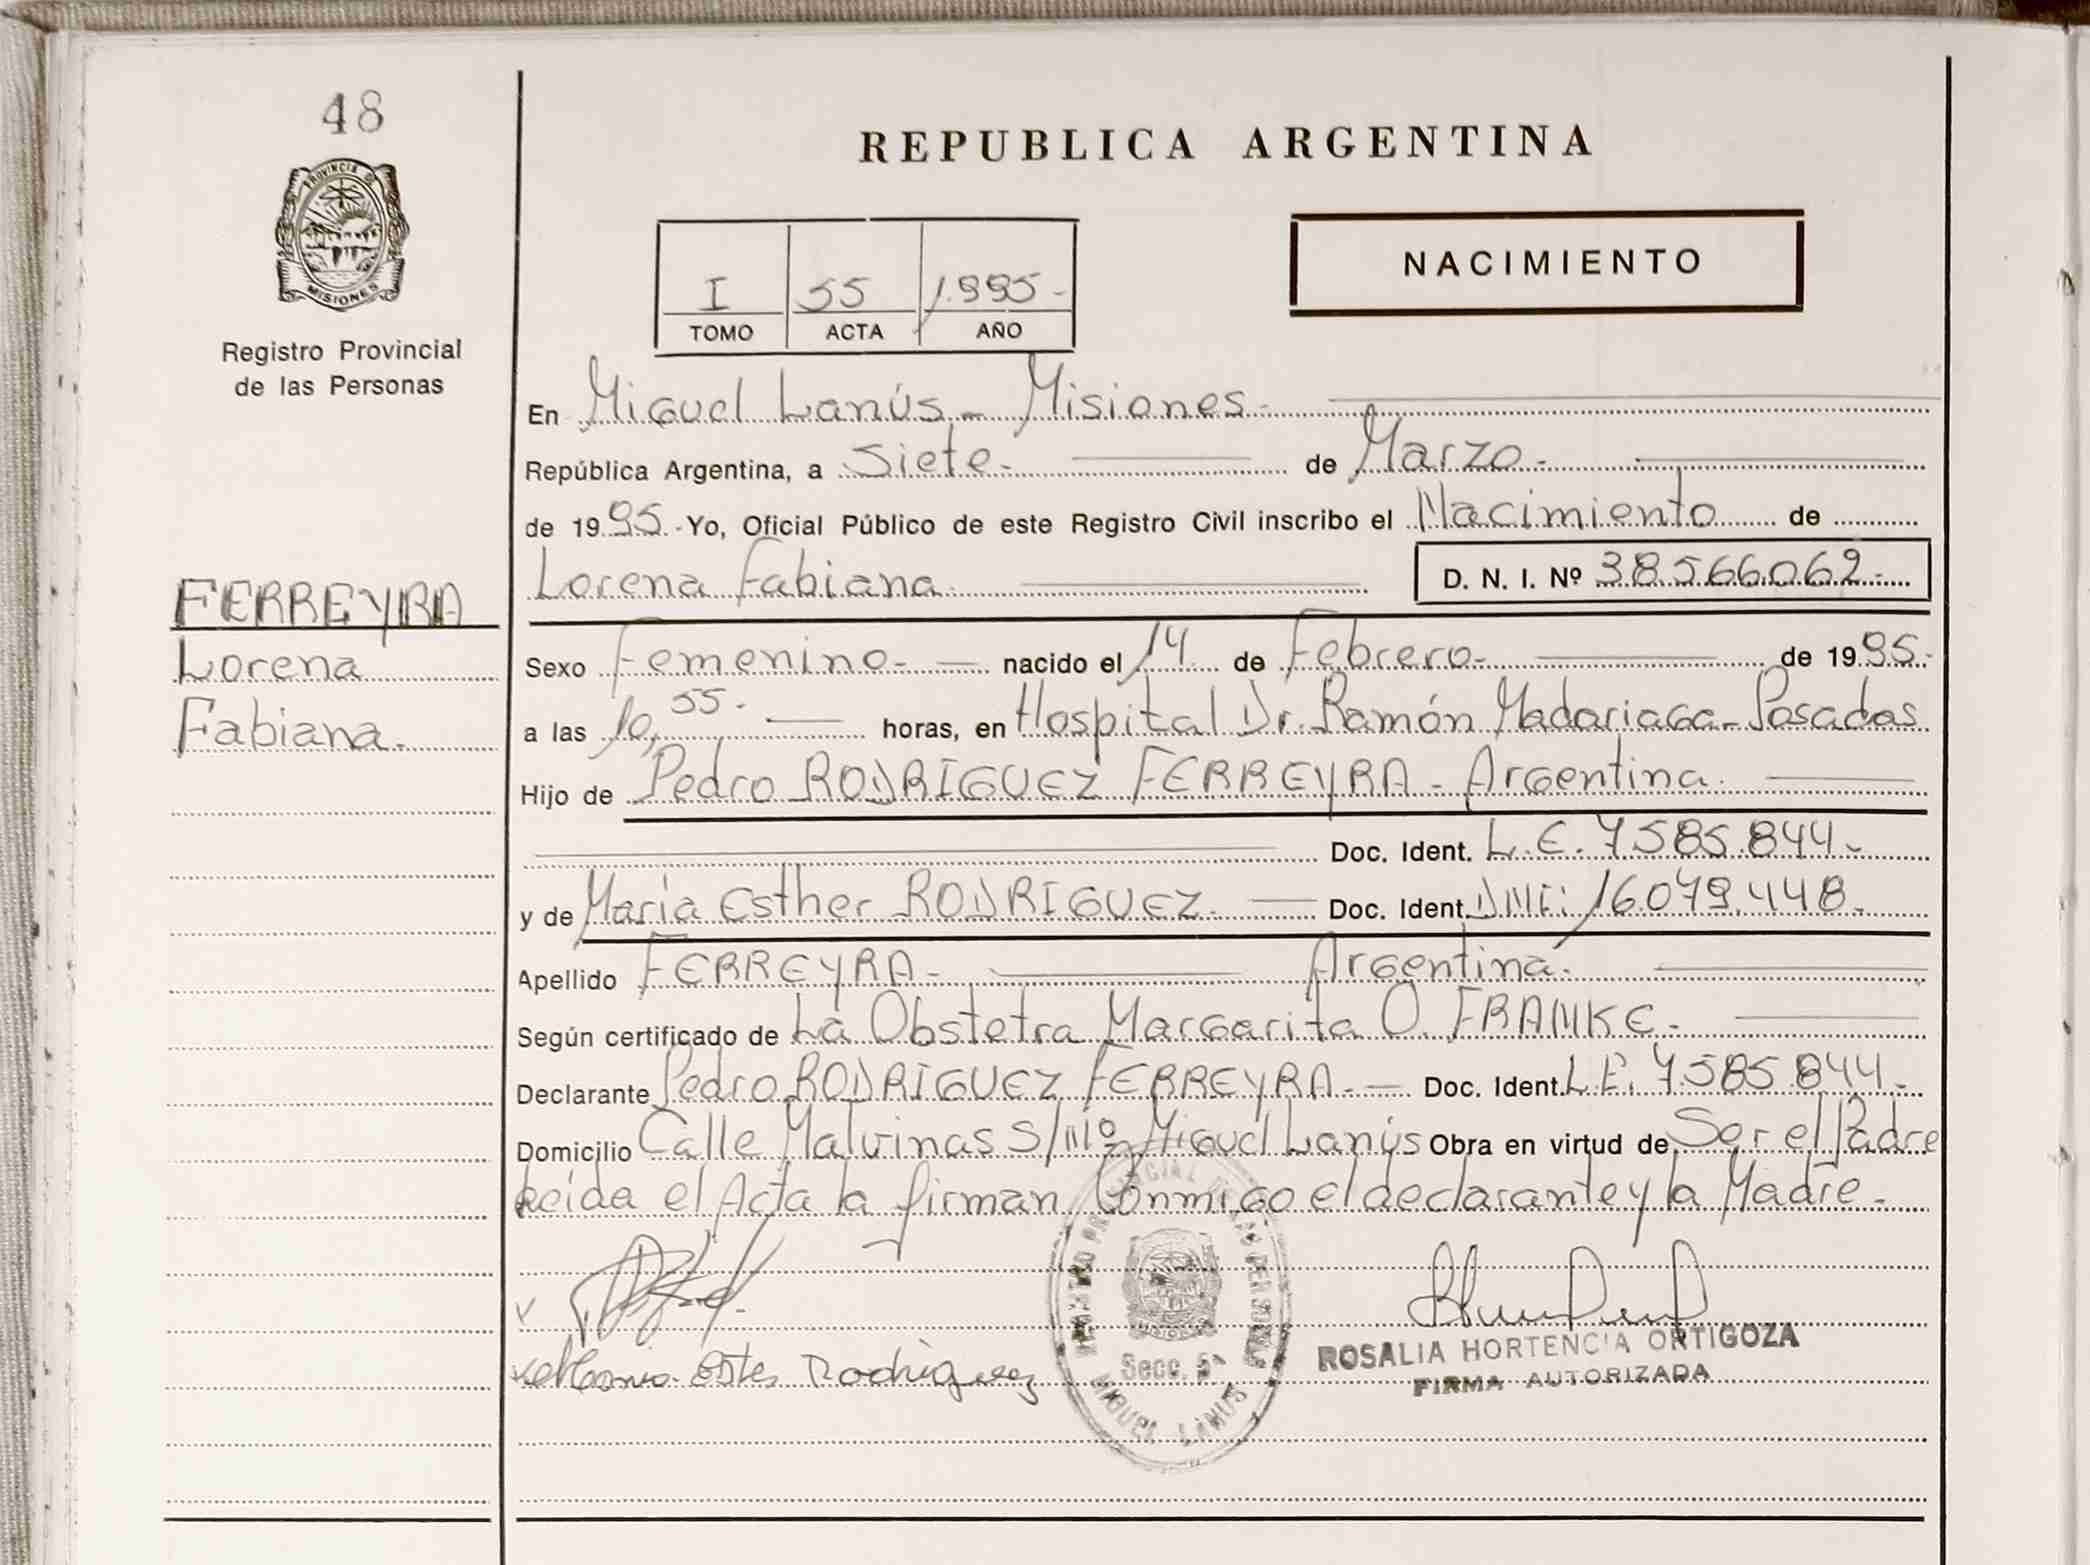 48
PROVINCIA DE
MISIONES
Registro Provincial
de las Personas
FERREYRA
Lorena
Fabiana.
REPUBLICA ARGENTINA
I 55 1.995-
TOMO ACTA AÑO
NACIMIENTO
En Miguel Lanús - Misiones -
República Argentina, a Siete - de Marzo -
de 19 95 - Yo, Oficial Público de este Registro Civil inscribo el Nacimiento de
Lorena Fabiana. D. N. I. Nº 38.566.062.-
Sexo Femenino - nacido el 14 de Febrero - de 19 95.-
a las 10,55 - horas, en Hospital Dr. Ramón Madariaga - Posadas
Hijo de Pedro RODRIGUEZ FERREYRA - Argentina.
Doc. Ident. L.E. 7.585.844.-
y de María Esther RODRIGUEZ - Doc. Ident. DNI: 16.079.448.-
Apellido FERREYRA - Argentina.
Según certificado de La Obstetra Margarita O. FRANKE -
Declarante Pedro RODRIGUEZ FERREYRA - Doc. Ident. L.E. 7.585.844.-
Domicilio Calle Malvinas S/Nº Miguel Lanús Obra en virtud de Ser el Padre
Leída el Acta la firman Conmigo el declarante y la Madre -
Rodriguez
Secc. 5ª
MISIONES
MIGUEL LANUS
ROSALIA HORTENCIA ORTIGOZA
FIRMA AUTORIZADA